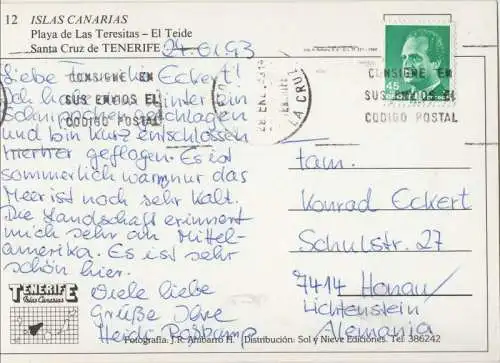 12 ISLAS CANARIAS
Playa de Las Teresitas – El Teide
Santa Cruz de TENERIFE
24.01.93
Liebe Familie Eckert!
Ich habe dem Winter ein
Schnippchen geschlagen
und bin kurz entschlossen
hierher geflogen. Es ist
sommerlich warm, nur das
Meer ist noch sehr kalt.
Die Landschaft erinnert
mich sehr an Mittel-
amerika. Es ist sehr
schön hier.
Viele liebe
Grüße Ihre
Heidi
CONSIGNE EN
SUS ENVIOS EL
CODIGO POSTAL
LA CRUZ
CONSIGNE EN
SUS ENVIOS EL
CODIGO POSTAL
45
Fam.
Konrad Eckert
Schulstr. 27
7414 Honau/
Lichtenstein
Alemania
TENERIFE
Islas Canarias
Fotografía: J.R. Anibarro H. Distribución: Sol y Nieve Ediciones. Tel. 386242